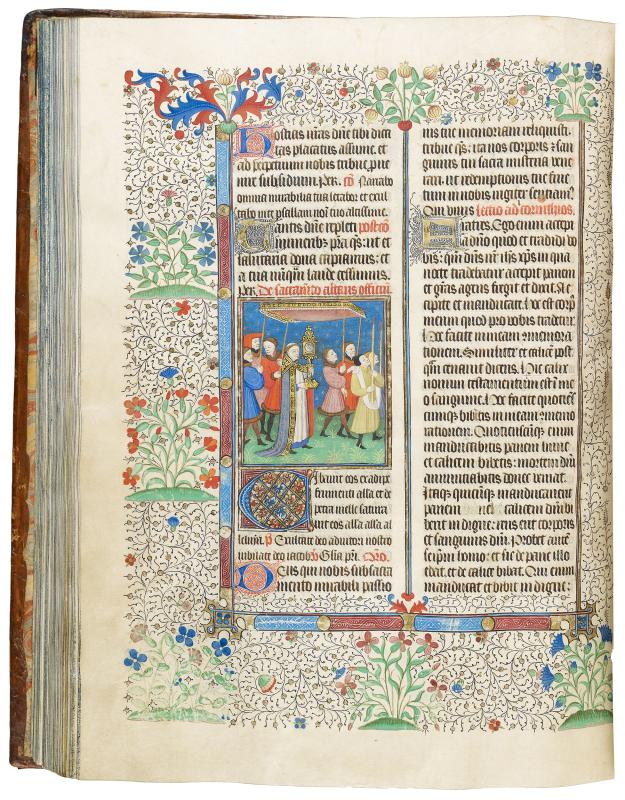 Hostias nr̃as dñe tibi dica
tas placatus assume. et
ad perpetuum nobis tribue
nire subsidium. Per. cõ Narrabo
omnia mirabilia tua letabor et exul
tabo in te psallam noĩ tuo altissime.
Tantis dñe repleti postcõ
muneribꝰ pr̃a qs̃. ut et
salutaria dona capiamus: et
a tua nũq̃ laude cessemus.
Per. De sacramẽto altaris officiũ.
Cibauit eos ex adipe
frumenti alla. et de
petra melle satura
uit eos alla alla al
leluia. p̃s Exultate deo adiutori nostro
iubilate deo iacob. Gl̃ia pr̃i. Oro.
Deus qui nobis sub sacra
mento mirabili passio
nis tue memoriam reliquisti.
tribue qs̃: ita nos corporis ⁊ san
guinis tui sacra misteria uene
rari. ut redemptionis tue fruc
tum in nobis iugiter sentiamꝰ
Qui uiuis lectio ad corinthios.
Fratres. Ego enim accepi
a dño quod et tradidi uo
bis: qm̃ dñs nr̃ ihs̃ xp̃s in qua
nocte tradebatur accepit panem
et grãs agens fregit et dixit. Ac
cipite et manducate. Hoc est corpꝰ
meum quod pro uobis tradetur.
Hoc facite in meam cõmemora
tionem. Similiter et calicẽ post
q̃m cenauit dicens. Hic calix
nouum testamentum est ĩ me
o sanguine. Hoc facite quotiẽs
cumqꝫ bibetis in meam cõmemo
rationem. Quotiescũqꝫ enim
manducabitis panem hunc
et calicem bibetis: mortem dñi
annunciabitis donec ueniat.
Itaqꝫ quicũqꝫ manducauerit
panem uel calicem dñi bibe
berit indigne: reus erit corporis
et sanguinis dñi. Probet autẽ
seipm̃ homo: et sic de pane illo
edat. et de calice bibat. Qui enim
manducat et bibit indigne: